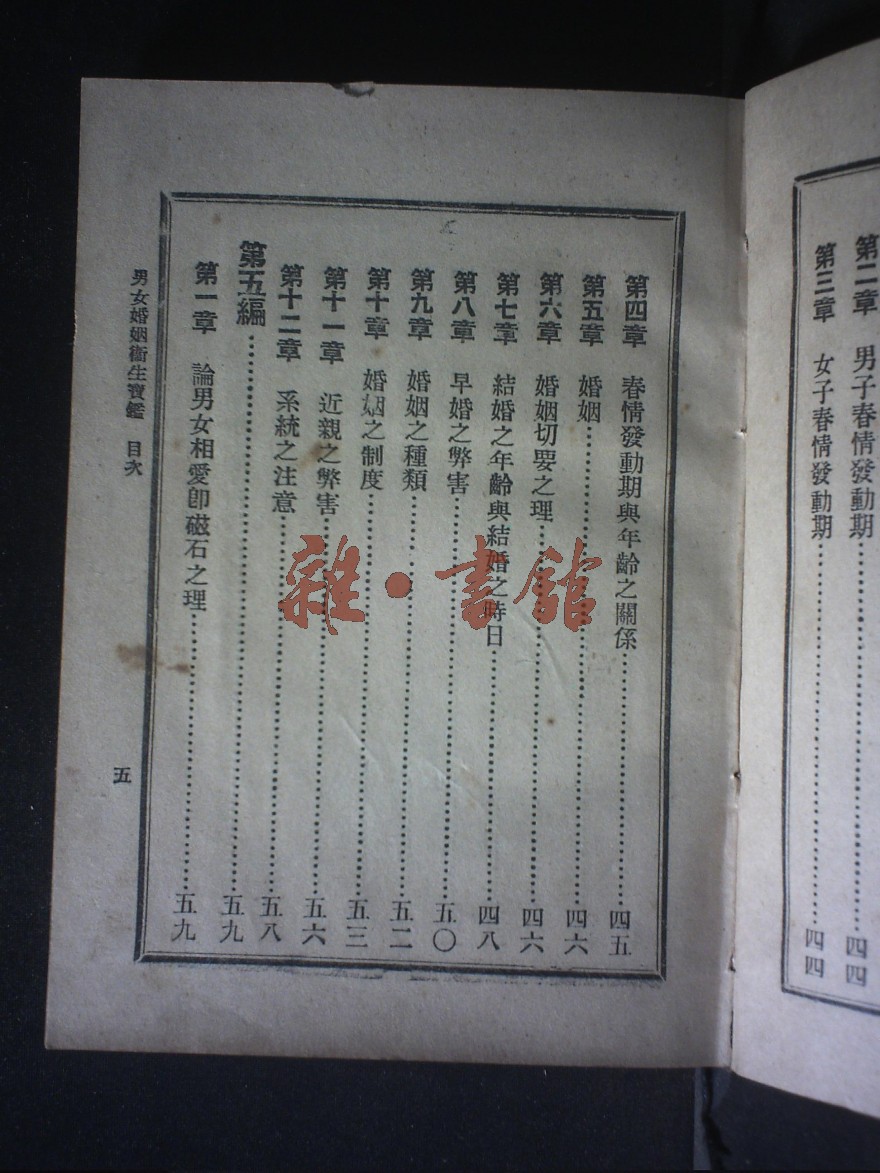 第二章　男子春情發動期……四四
第三章　女子春情發動期……四四
第四章　春情發動期與年齡之關係……四五
第五章　婚姻……四六
第六章　婚姻切要之理……四六
第七章　結婚之年齡與結婚之時日……四八
第八章　早婚之弊害……五〇
第九章　婚姻之種類……五二
第十章　婚姻之制度……五三
第十一章　近親之弊害……五六
第十二章　系統之注意……五八
第五編……五九
第一章　論男女相愛卽磁石之理……五九
男女婚姻衞生寶鑑　目次
五
雜·書館